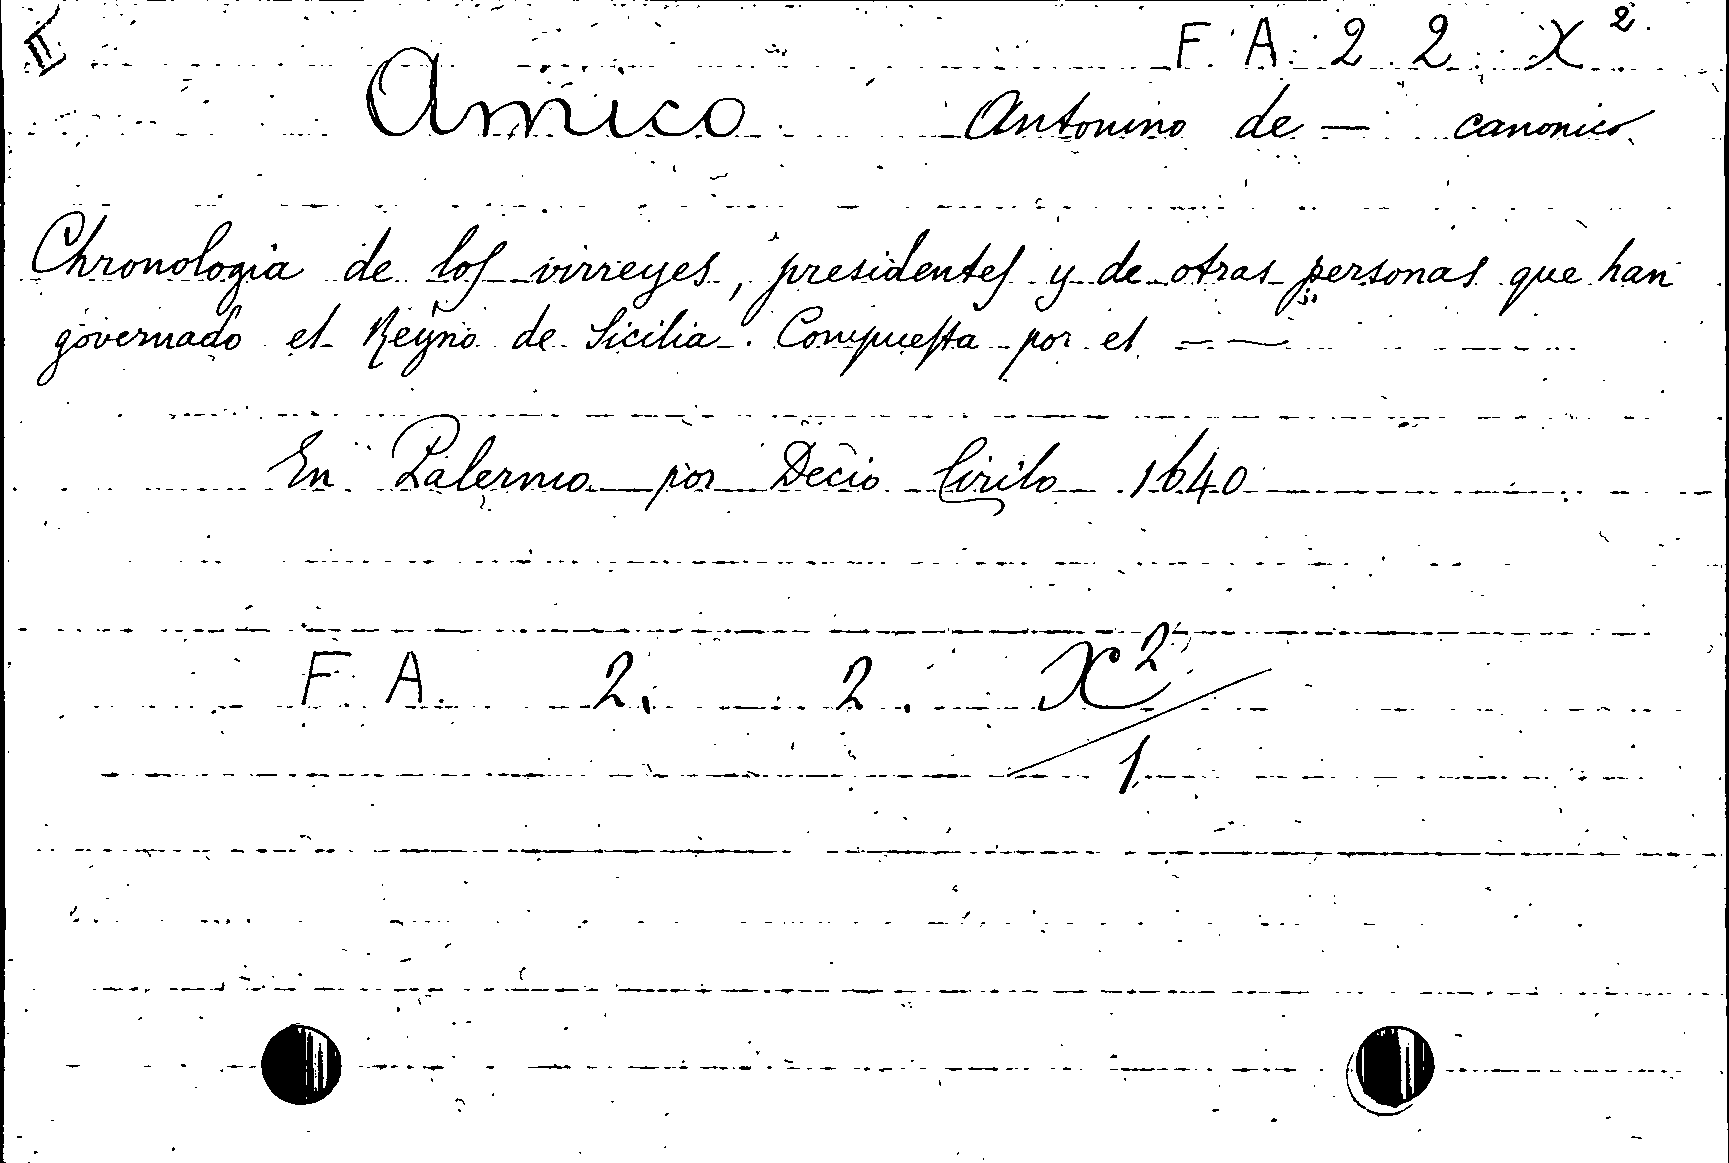 II
F. A. 2. 2. X².
Amico Antonino de — canonico
Chronologia de los virreyes, presidentes y de otras personas que han
governado el Reyno de Sicilia. Compuesta por el ——
En Palermo por Decio Cirilo 1640
F. A. 2. 2. X²/1